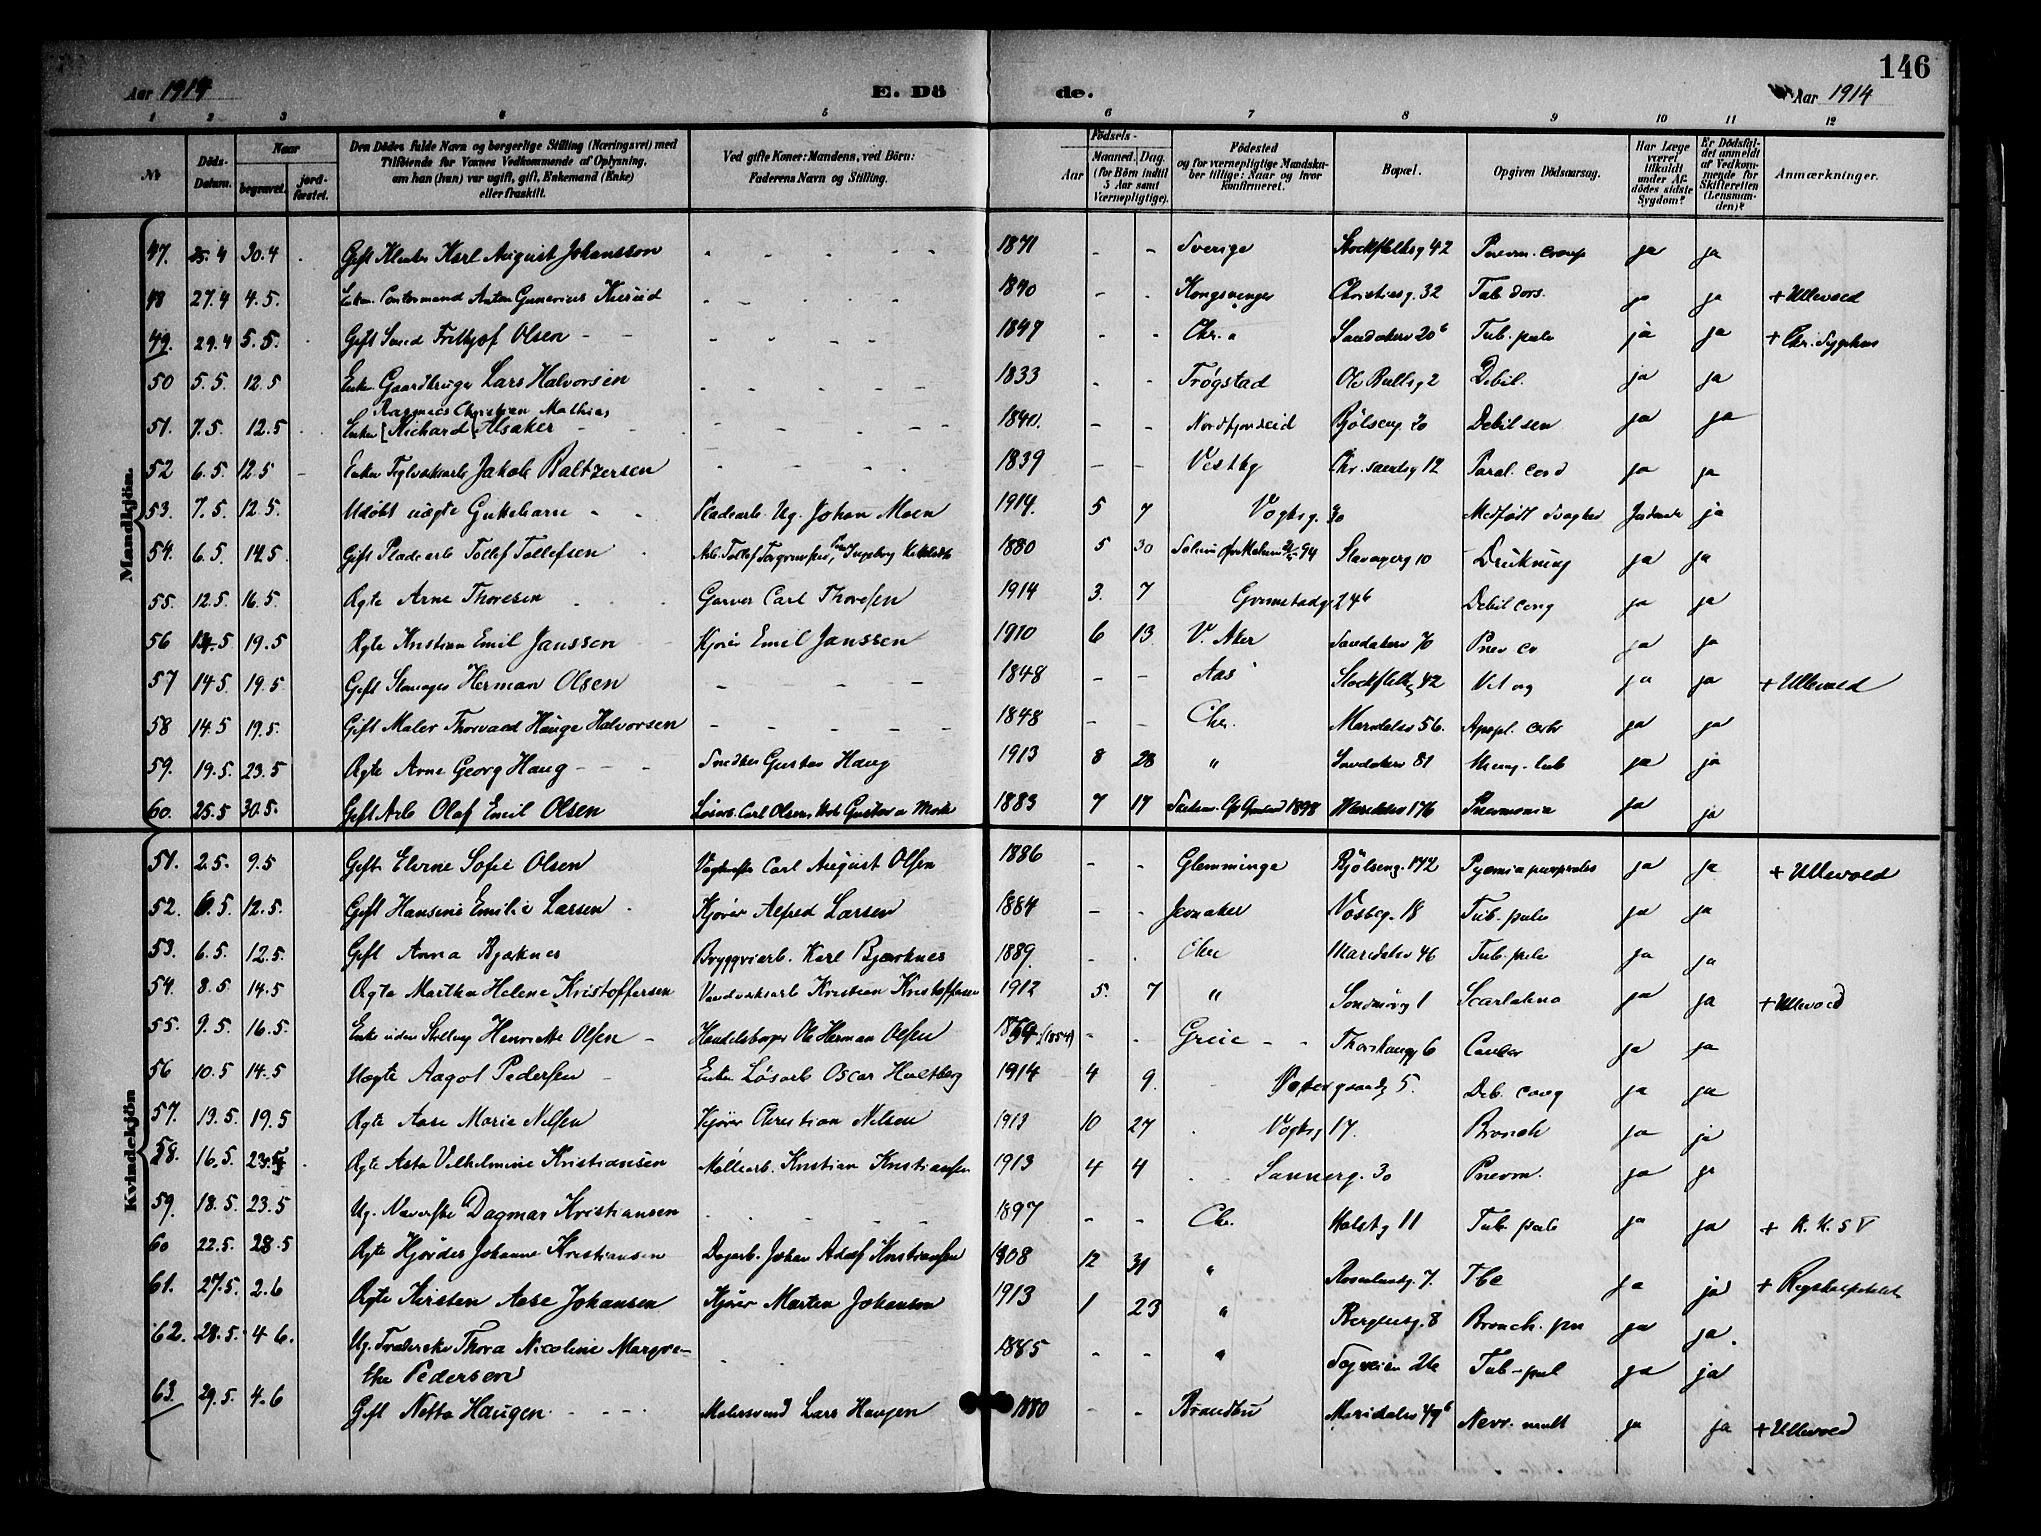 146
Aar 1914
E. Döde.
Aar 1914
1 2 3 4 5 6 7 8 9 10 11 12
No
Döds-Datum.
Naar
begravet.
jord-fæstet.
Den Dödes fulde Navn og borgerlige Stilling (Næringsvei) med
Tilföiende for Voxnes Vedkommende af Oplysning,
om han (hun) var ugift, gift, Enkemand (Enke)
eller fraskilt.
Ved gifte Koner: Mandens, ved Börn:
Faderens Navn og Stilling.
Födsels-
Aar
Maaned.
Dag.
(for Börn indtil
5 Aar samt
Værnepligtige).
Födested
og for værnepligtige Mandska-
ber tillige: Naar og hvor
konfirmeret.
Bopæl.
Opgiven Dödsaarsag.
Har Læge
været
tilkaldt
under Af-
dödes sidste
Sygdom?
Er Dödsfal-
det anmeldt
af Vedkom-
mende for
Skifteretten
(Lensman-
den)?
Anmærkninger.
Mandkjön.
47. 25.4 30.4 Gift Karl August Johansson 1871 - - Sverige 42 ja ja
48 27.4 4.5. Anton Gunerius 1840 - - Kongsvinger Christiesg. 32 Tab. dors. ja ja + Ullevold
49. 29.4 5.5. Gift Smed Fritjof Olsen 1847 - - Chr.a Sandakerv 20b Tub. pulm ja ja + Chr. Sygehus
50 5.5. 12.5 Enkem. Lars Halvorsen 1833 - - Trøgstad Ole Bullsg 2 Debil. ja ja
51. 7.5. 12.5 Rasmus Christian Mathias [Richard] Alsaker 1840. - - Nordfjordeid Bjølseng 20 Debil sen ja ja
52 6.5 12.5 Jakob Baltzersen 1839 - - Vestby 12 Paral. cord ja ja
53. 7.5. 12.5. Udøbt uægte Guttebarn Pladearb. Ug. Johan Moen 1914. 5 7 Vogtsg. 30 Medfødt Svaghed ja
54. 6.5 14.5 Gift Pladearb Tollef Tollefsen Arb. Tollef Ingeborg 1880 5 30 94 10 Drukning ja ja
55. 12.5. 16.5. Ægte Arne Thoresen Garver Carl Thoresen 1914 3. 7 Grimstadg 24b Debil cong ja ja
56 13.5 19.5 Ægte Kristian Emil Janssen Kjører Emil Janssen 1910 6 13 V. Aker Sandakerv 70 Pnev cr ja ja
57 14.5. 19.5. Gift Herman Olsen 1848 - - Aas 42 Vit org ja ja + Ullevold
58 14.5 19.5. Gift Maler Thorvald Hauge Halvorsen 1848 - - Chr. Maridalsv 56. Apopl. cerebr ja ja
59. 19.5. 23.5 Ægte Arne Georg Haug Snedker Gustav Haug 1913 8 28 " Sandakerv 81 Meng. tub ja ja
60. 25.5 30.5. Gift Arb Olaf Emil Olsen Carl Olsen Gustava Moe 1883 7 17 1898 Maridalsv 176 Pneumonia ja ja
Kvindekjön
51. 2.5. 9.5 Gift Elvine Sofie Olsen Carl August Olsen 1886 - - Glemminge Bjølseng. 172 Pyæmia puerperalis ja ja + Ullevold
52. 6.5. 12.5. Gift Hansine Emilie Larsen Kjører Alfred Larsen 1884 - - Jevnaker 18 Tub. pulm ja ja
53. 6.5. 12.5. Gift Anna Bjerknes Bryggeriarb. Karl Bjerknes 1889. - - Chr Maridalsv 46 Tub. pulm ja ja
54. 8.5 14.5 Ægte Martha Helene Kristoffersen Kristian Kristoffersen 1912 5. 7 " 1 Scarlatina ja ja + Ullevold
55. 9.5. 16.5. Enke uden Stilling Henriette Olsen Ole Herman Olsen (1854) - - 6 Cancer ja ja
56 10.5 14.5 Uægte Aagot Pedersen Enkem Løsarb Oscar Hultberg 1914 4 9. 5. Deb. cong ja ja
57. 13.5. 19.5 Ægte Aase Marie Nilsen Kjører Christian Nilsen 1913 10 27 Vogtsg 17. Bronch ja ja
58. 16.5. 23.5 Ægte Asta Vilhelmine Kristiansen Møllearb. Kristian Kristiansen 1913 4 4 Sannerg. 30 Pnevm. ja ja
59. 18.5. 23.5 Ug. Dagmar Kristiansen 1897 - - Chr. Holstg 11 Tub. pulm ja ja +
60 22.5. 28.5 Ægte Hjørdes Johanne Kristiansen Dagarb. Johan Adolf Kristiansen 1908 12 31 " 7. Tbc ja ja + Rigshospitalet
61. 27.5. 2.6 Ægte Kirsten Aase Johansen Kjører Martin Johansen 1913 1 23 " 8 Bronch. pn ja ja.
62. 28.5. 4 6. Ug. Thora Nicoline Margre-
the Pedersen 1885 - - " 26 Tub-pul ja ja
63. 29.5. 4.6 Gift Netta Haugen Malersvend Lars Haugen 1880 - - Brandbu Maridalsv 49b ja ja + Ullevold